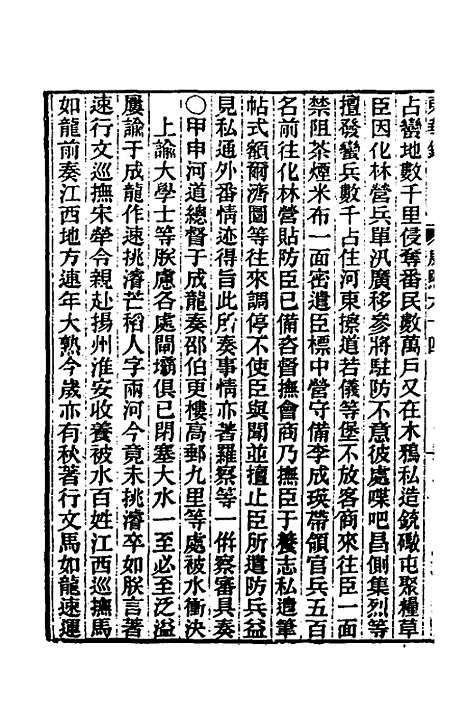 占蠻地數千里侵奪番民數萬戶又在木鴉私造銃礮屯聚糧草
臣因化林營兵單汛廣移參將駐防不意彼處喋吧昌側集烈等
擅發蠻兵數千占住河東擦道若儀等堡不放客商來往臣一面
禁阻茶煙米布一面密遣臣標中營守備李成瑛帶領官兵五百
名前往化林營貼防臣已備咨督撫會商乃撫臣于養志私遣筆
帖式額爾濟圖等往來調停不使臣與聞並擅止臣所遣防兵益
見私通外番情迹得旨此所奏事情亦著羅察等一倂察審具奏
〇甲申河道總督于成龍奏邵伯更樓高郵九里等處被水衝決
上諭大學士等朕慮各處閘壩俱已閉塞大水一至必至泛溢
屢諭于成龍作速挑濬芒稻人字兩河今竟未挑濬卒如朕言著
速行文巡撫宋犖令親赴揚州淮安收養被水百姓江西巡撫馬
如龍前奏江西地方連年大熟今歲亦有秋著行文馬如龍速運